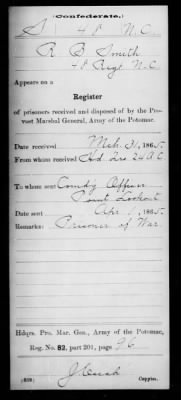 (Confederate.)
S 48 N. C.
R B Smith
48 Regt N.C.
Appears on a
Register
of prisoners received and disposed of by the Provost Marshal General, Army of the Potomac.
Date received Mch 31, 1865.
From whom received Hd Qrs 24 A C
To whom sent Comd'g Officer
Point Lookout
Date sent Apr 1, 1865.
Remarks: Prisoner of War
Hdqrs. Pro. Mar. Gen., Army of the Potomac,
Reg. No. 82, part 201, page 96
(639)
Copyist.